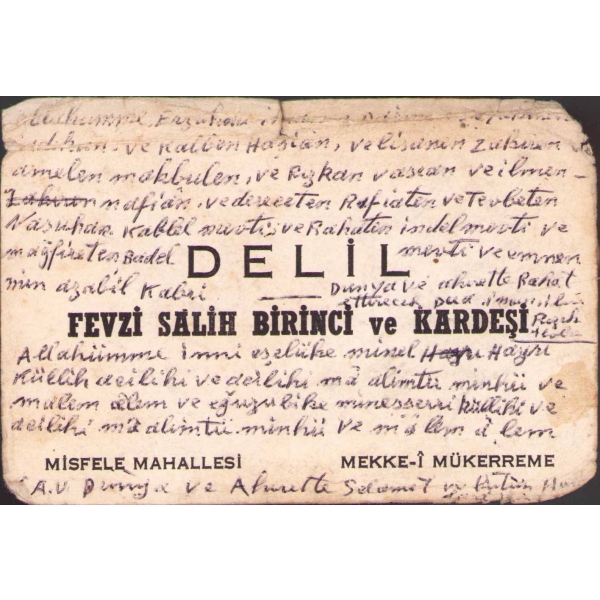 Allahümme Erzukni
ve Kalben Haşian, ve lisanen Zakiran
amelen makbulen, ve Rızkan vasian ve ilmen
nafian, ve dereceten Rafiaten ve Tevbeten
Nasuhan Kablel mevti, ve Rahaten indel mevti ve
mağfireten Badel mevti ve emnen
min azabil Kabri
DELİL
Dunya ve ahrette Rahat
ettirecek Dua
FEVZİ SALİH BİRİNCİ ve KARDEŞİ
Allahümme İnni eselüke minel Hayri
Küllih acilihi ve acilihi mâ alimtü minhü ve
malem âlem ve eğuzubike mineşşerri küllihi ve
acilihi mâ alimtü minhü ve mâlem â lem
MİSFELE MAHALLESİ MEKKE-Î MÜKERREME
A.V. Dunya ve Ahrette Selamet ve Bütün